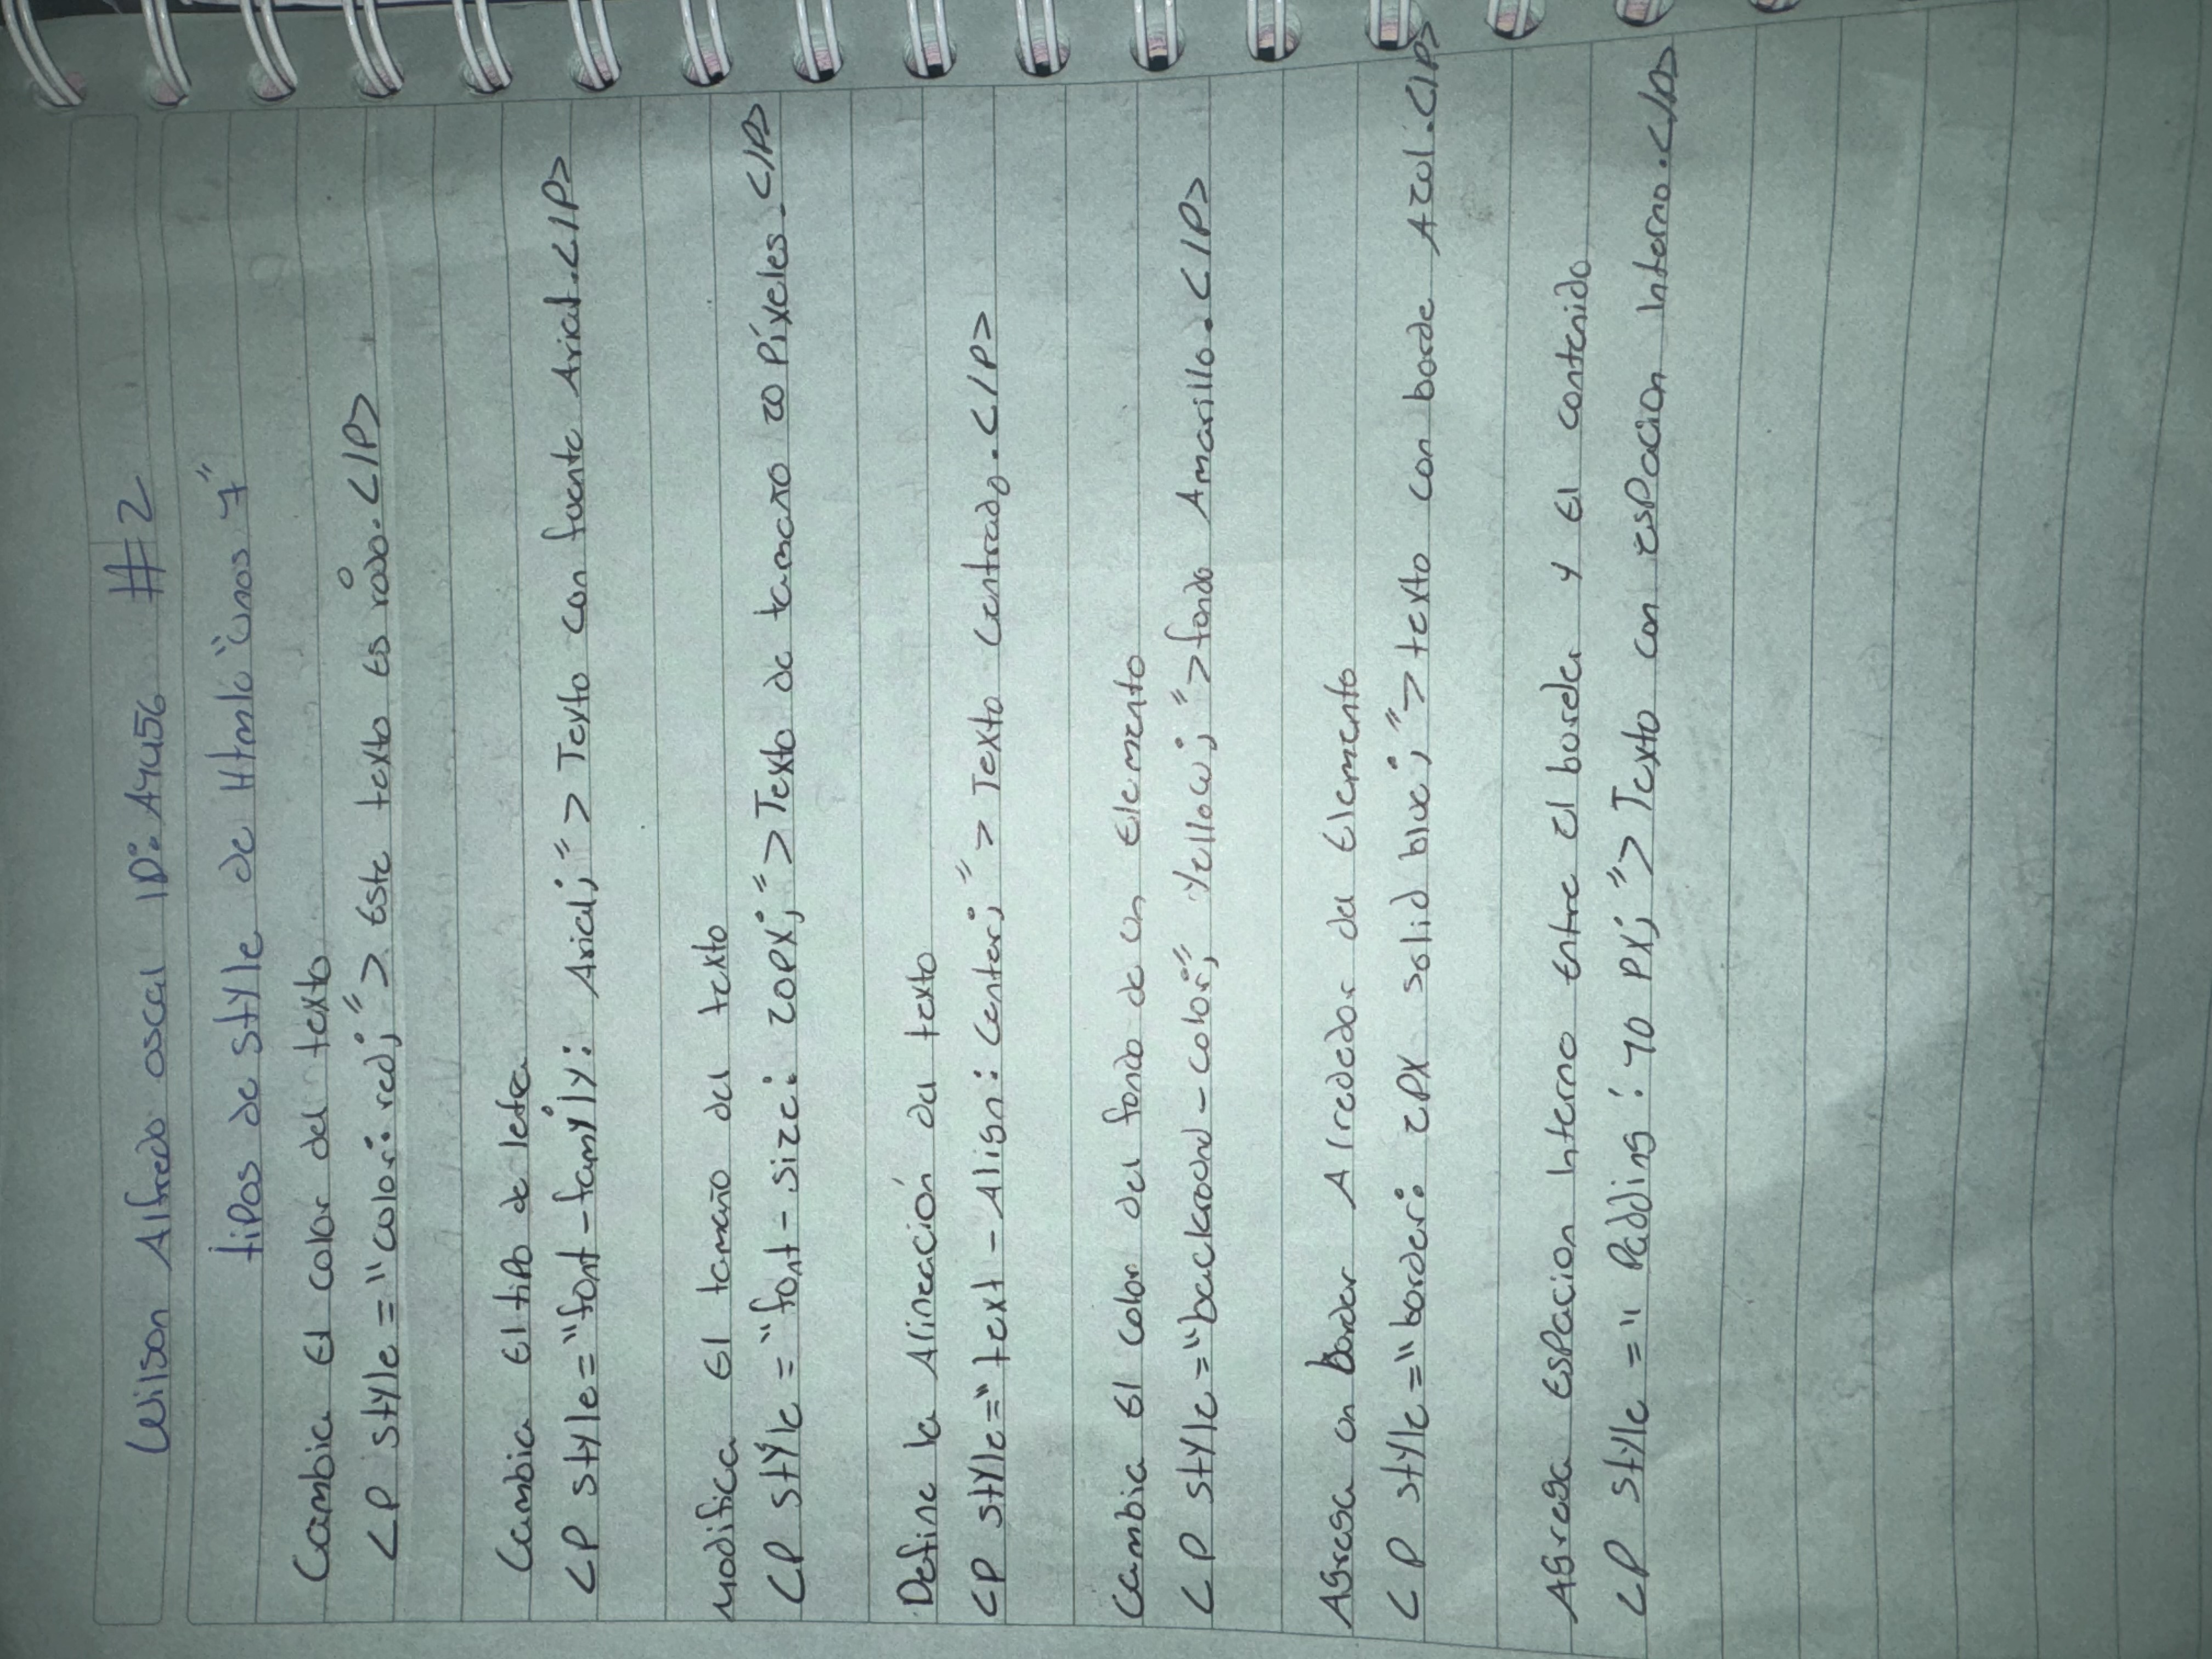 Wilson Alfredo oscal ID: A4456 #2
tipos de style de Html "unos 7"
Cambia El color del texto
<P style="color: red;"> Este texto Es rodo.</P>
Cambia El tipo de letra
<P style="font-family: Arial;"> Texto con fuente Arial.</P>
Modifica El tamaño del texto
<P style="font-size: 20px;">Texto de tamaño 20 Píxeles.</P>
Define la Alineación del texto
<P style="text-Align: Center;"> Texto Centrado.</P>
Cambia El color del fondo de un Elemento
<P style="backcround-color;" Yellow;">fondo Amarillo.</P>
Agrega un border Alrededor del Elemento
<P style="border: 2PX solid blue;">texto con borde Azul.</P>
Agrega Espacion Interno Entre El borede y El contenido
<P style=" Padding: 10 PX;">Texto con Espacion Interno.</P>